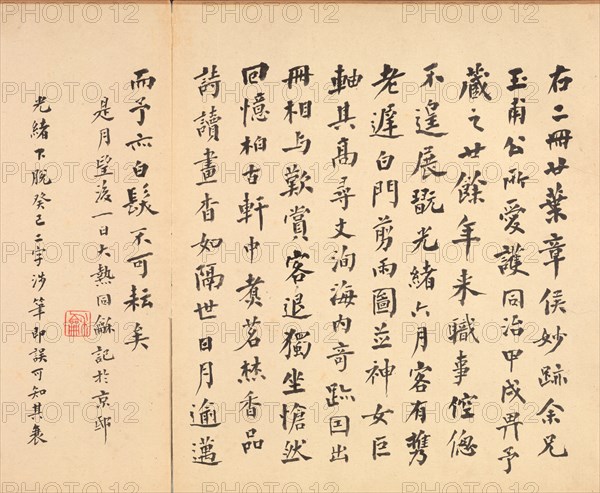 右二冊廿葉章侯妙跡余兄
玉甫公所愛護同治甲戌畀予
藏之廿餘年来職事倥偬
不遑展翫光緒六月客有攜
老遲白門剪雨圖並神女巨
軸其高尋丈洵海内奇跡囙出
冊相与歎賞客退獨坐愴然
回憶柏古軒中煑茗焚香品
詩讀畫杳如隔世日月逾邁
而予亦白髮不可耘矣
是月望後一日大熱同龢記於京邸
光緒下脫癸巳二字涉筆即誤可知其衰
PHOTO12